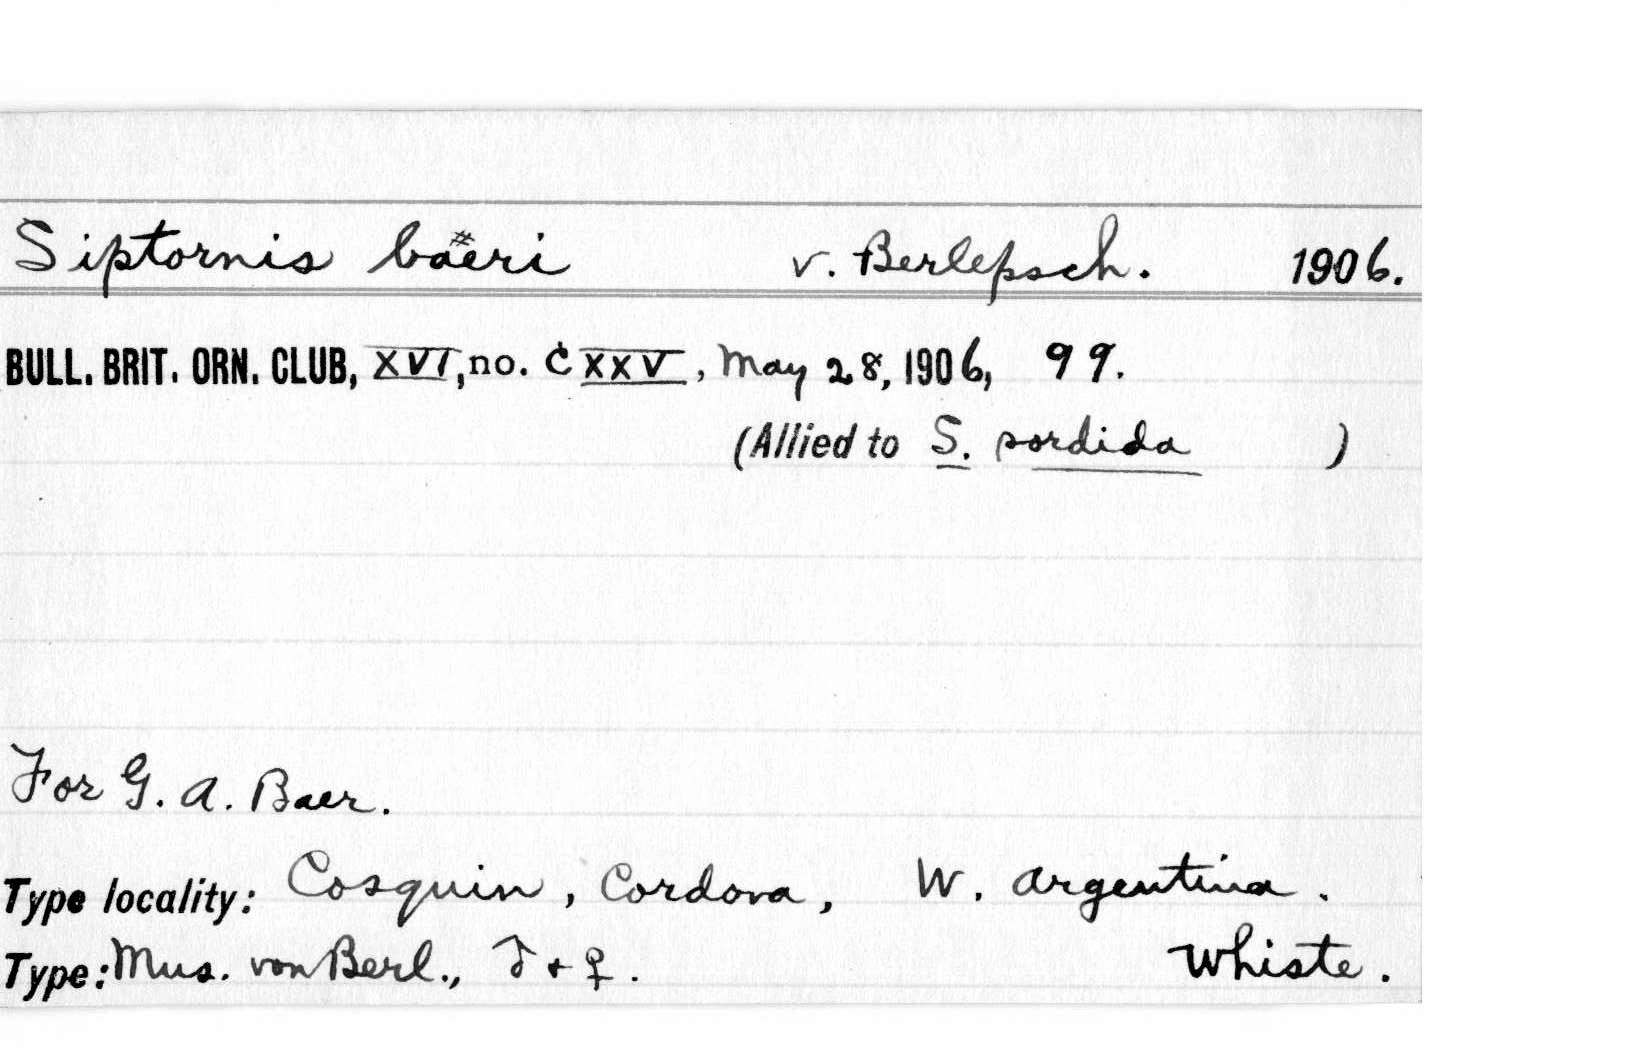 Siptornis baëri v. Berlepsch. 1906.
BULL. BRIT. ORN. CLUB, XVI, no. CXXV, May 28, 1906, 99.
(Allied to S. sordida )
For G. A. Baer.
Type locality: Cosquin, Cordova, W. Argentina.
Type: Mus. von Berl., ♂ + ♀. Whiste.